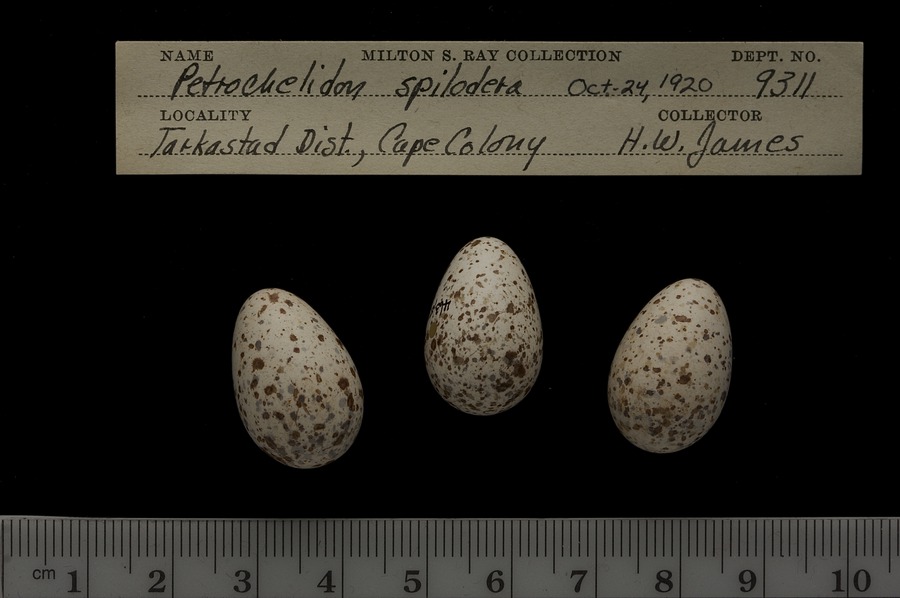 NAME MILTON S. RAY COLLECTION DEPT. NO.
Petrochelidon spilodera Oct. 24, 1920 9311
LOCALITY COLLECTOR
Tarkastad Dist., Cape Colony H.W. James
cm 1 2 3 4 5 6 7 8 9 10